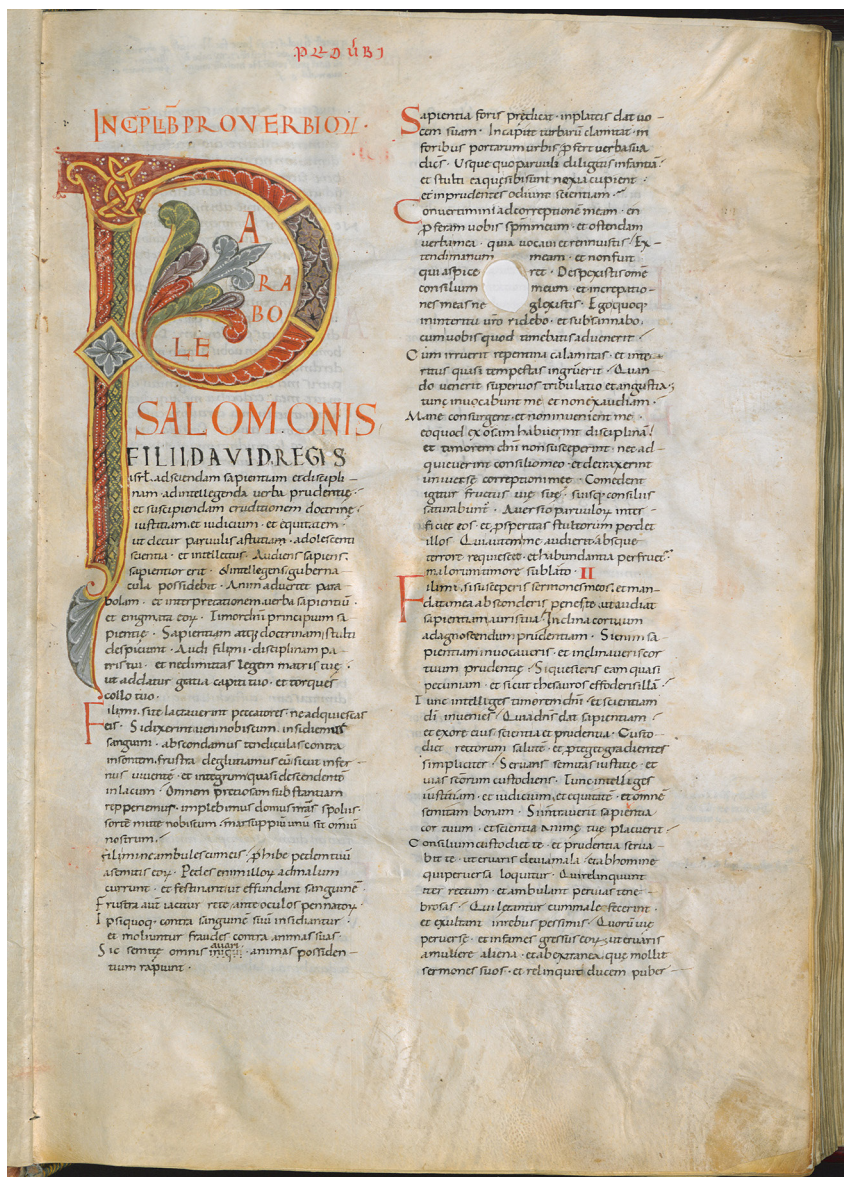 INCIPIT LIB PROVERBIOR·
P
A
RA
BO
LE
SALOMONIS
FILII DAVID REGIS
isrl. ad sciendam sapientiam et discipli-
nam. ad intellegenda verba prudentię·
et suscipiendam eruditionem doctrinę·
iustitiam. et iudicium· et equitatem·
ut detur parvulis astutiam. adolescenti
scientia· et intellectus. Audiens sapiens.
sapientior erit· & intellegens. guberna-
cula possidebit· Animadvertet para
bolam· et interpretationem. verba sapientiū·
et enigmata eoꝝ· Timor dn̄i principium sa-
pientię· Sapientiam atq; doctrinam stulti
despiciunt· Audi fili mi· disciplinam pa-
tris tui· et ne dimittas legem matris tuę·
ut addatur gratia capiti tuo· et torques
collo tuo·
Fili mi. si te lactaverint peccatores· ne adquiescas
eis· Si dixerint veni nobiscum. insidiemur
sanguini· abscondamus tendiculas contra
insontem. frustra deglutiamus eū sicut infer-
nus viventē· et integrum quasi descendentē
in lacum· Omnem pretiosam substantiam
repperiemus· implebimus domus nr̄as spoliis·
sortē mitte nobiscum· marsuppiū unū sit omniū
nostrum·
Fili mi ne ambules cum eis· p̄hibe pedem tuū
a semitis eoꝝ· Pedes enim illoꝝ ad malum
currunt· et festinant ut effundant sanguinē·
Frustra aut̄ iacitur rete ante oculos pennatoꝝ·
Ipsi quoq· contra sanguinē suū insidiantur·
et moliuntur fraudes contra animas suas·
Sic semitę omnis avari· animas possiden-
tium rapiunt·
Sapientia foris predicat· in plateis dat vo-
cem suam· In capite turbarū clamitat· in
foribus portarum urbis p̄fert verba sua
dicēs· Usque quo parvuli diligitis infantiā·
et stulti ea que sibi sunt noxia cupient·
et inprudentes odiunt scientiam·
Convertimini ad correptionē meam· en
p̄feram vobis sp̄m meum· et ostendam
verba mea· quia vocavi et rennuistis· Ex-
tendi manum meam· et non fuit
qui aspiceret· Despexistis omē
consilium meum· et increpatio-
nes meas neglexistis· Ego quoq;
in interitu vr̄o ridebo· et subsannabo.
cum vobis quod timebatis advenerit·
Cum irruerit repentina calamitas· et inte-
ritus quasi tempestas ingruerit· Quan
do venerit super vos tribulatio et angustia;
tunc invocabunt me et non exaudiam·
Mane consurgent et non invenient me·
eo quod exosam habuerint disciplinā·
et timorem dn̄i non susceperint· nec ad-
quieverint consilio meo· et detraxerint
universę correptioni meę· Comedent
igitur fructus vię suę· suisq; consiliis
saturabunt̄· Aversio parvuloꝝ inter-
ficiet eos· et p̄speritas stultorum perdet
illos· Qui autem me audierit absque
terrore requiescet· et habundantia perfruet̄·
malorum timore sublato· II
Fili mi. si susceperis sermones meos. et man-
data mea absconderis penes te. ut audiat
sapientiam auris tua· Inclina cor tuum
ad agnoscendum prudentiam· Si enim sa-
pientiam invocaveris· et inclinaveris cor
tuum prudentię· Si quesieris eam quasi
pecuniam· et sicut thesauros effoderis illā·
Tunc intelliges timorem dn̄i· et scientiam
dī invenies· Quia dn̄s dat sapientiam
et ex ore eius scientia et prudentia· Custo-
diet rectorum salutē· et p̄teget gradientes
simpliciter· Servans semitas iustitię· et
vias scōrum custodiens· Tunc intelliges
iustitiam· et iudicium. et equitatē· et omnē
semitam bonam· Si intraverit sapientia
cor tuum· et scientia animę tuę placuerit·
Consilium custodiet te· et prudentia serva-
bit te· ut eruaris de via mala· et ab homine
qui perversa loquitur· Qui relinquunt
iter rectum· et ambulant per vias tene-
brosas· Qui lętantur cum male fecerint·
et exultant in rebus pessimis· Quorū vię
perversę· et infames gressus eoꝝ· ut eruaris
a muliere aliena· et ab extranea· quę mollit
sermones suos· et relinquit ducem puber-